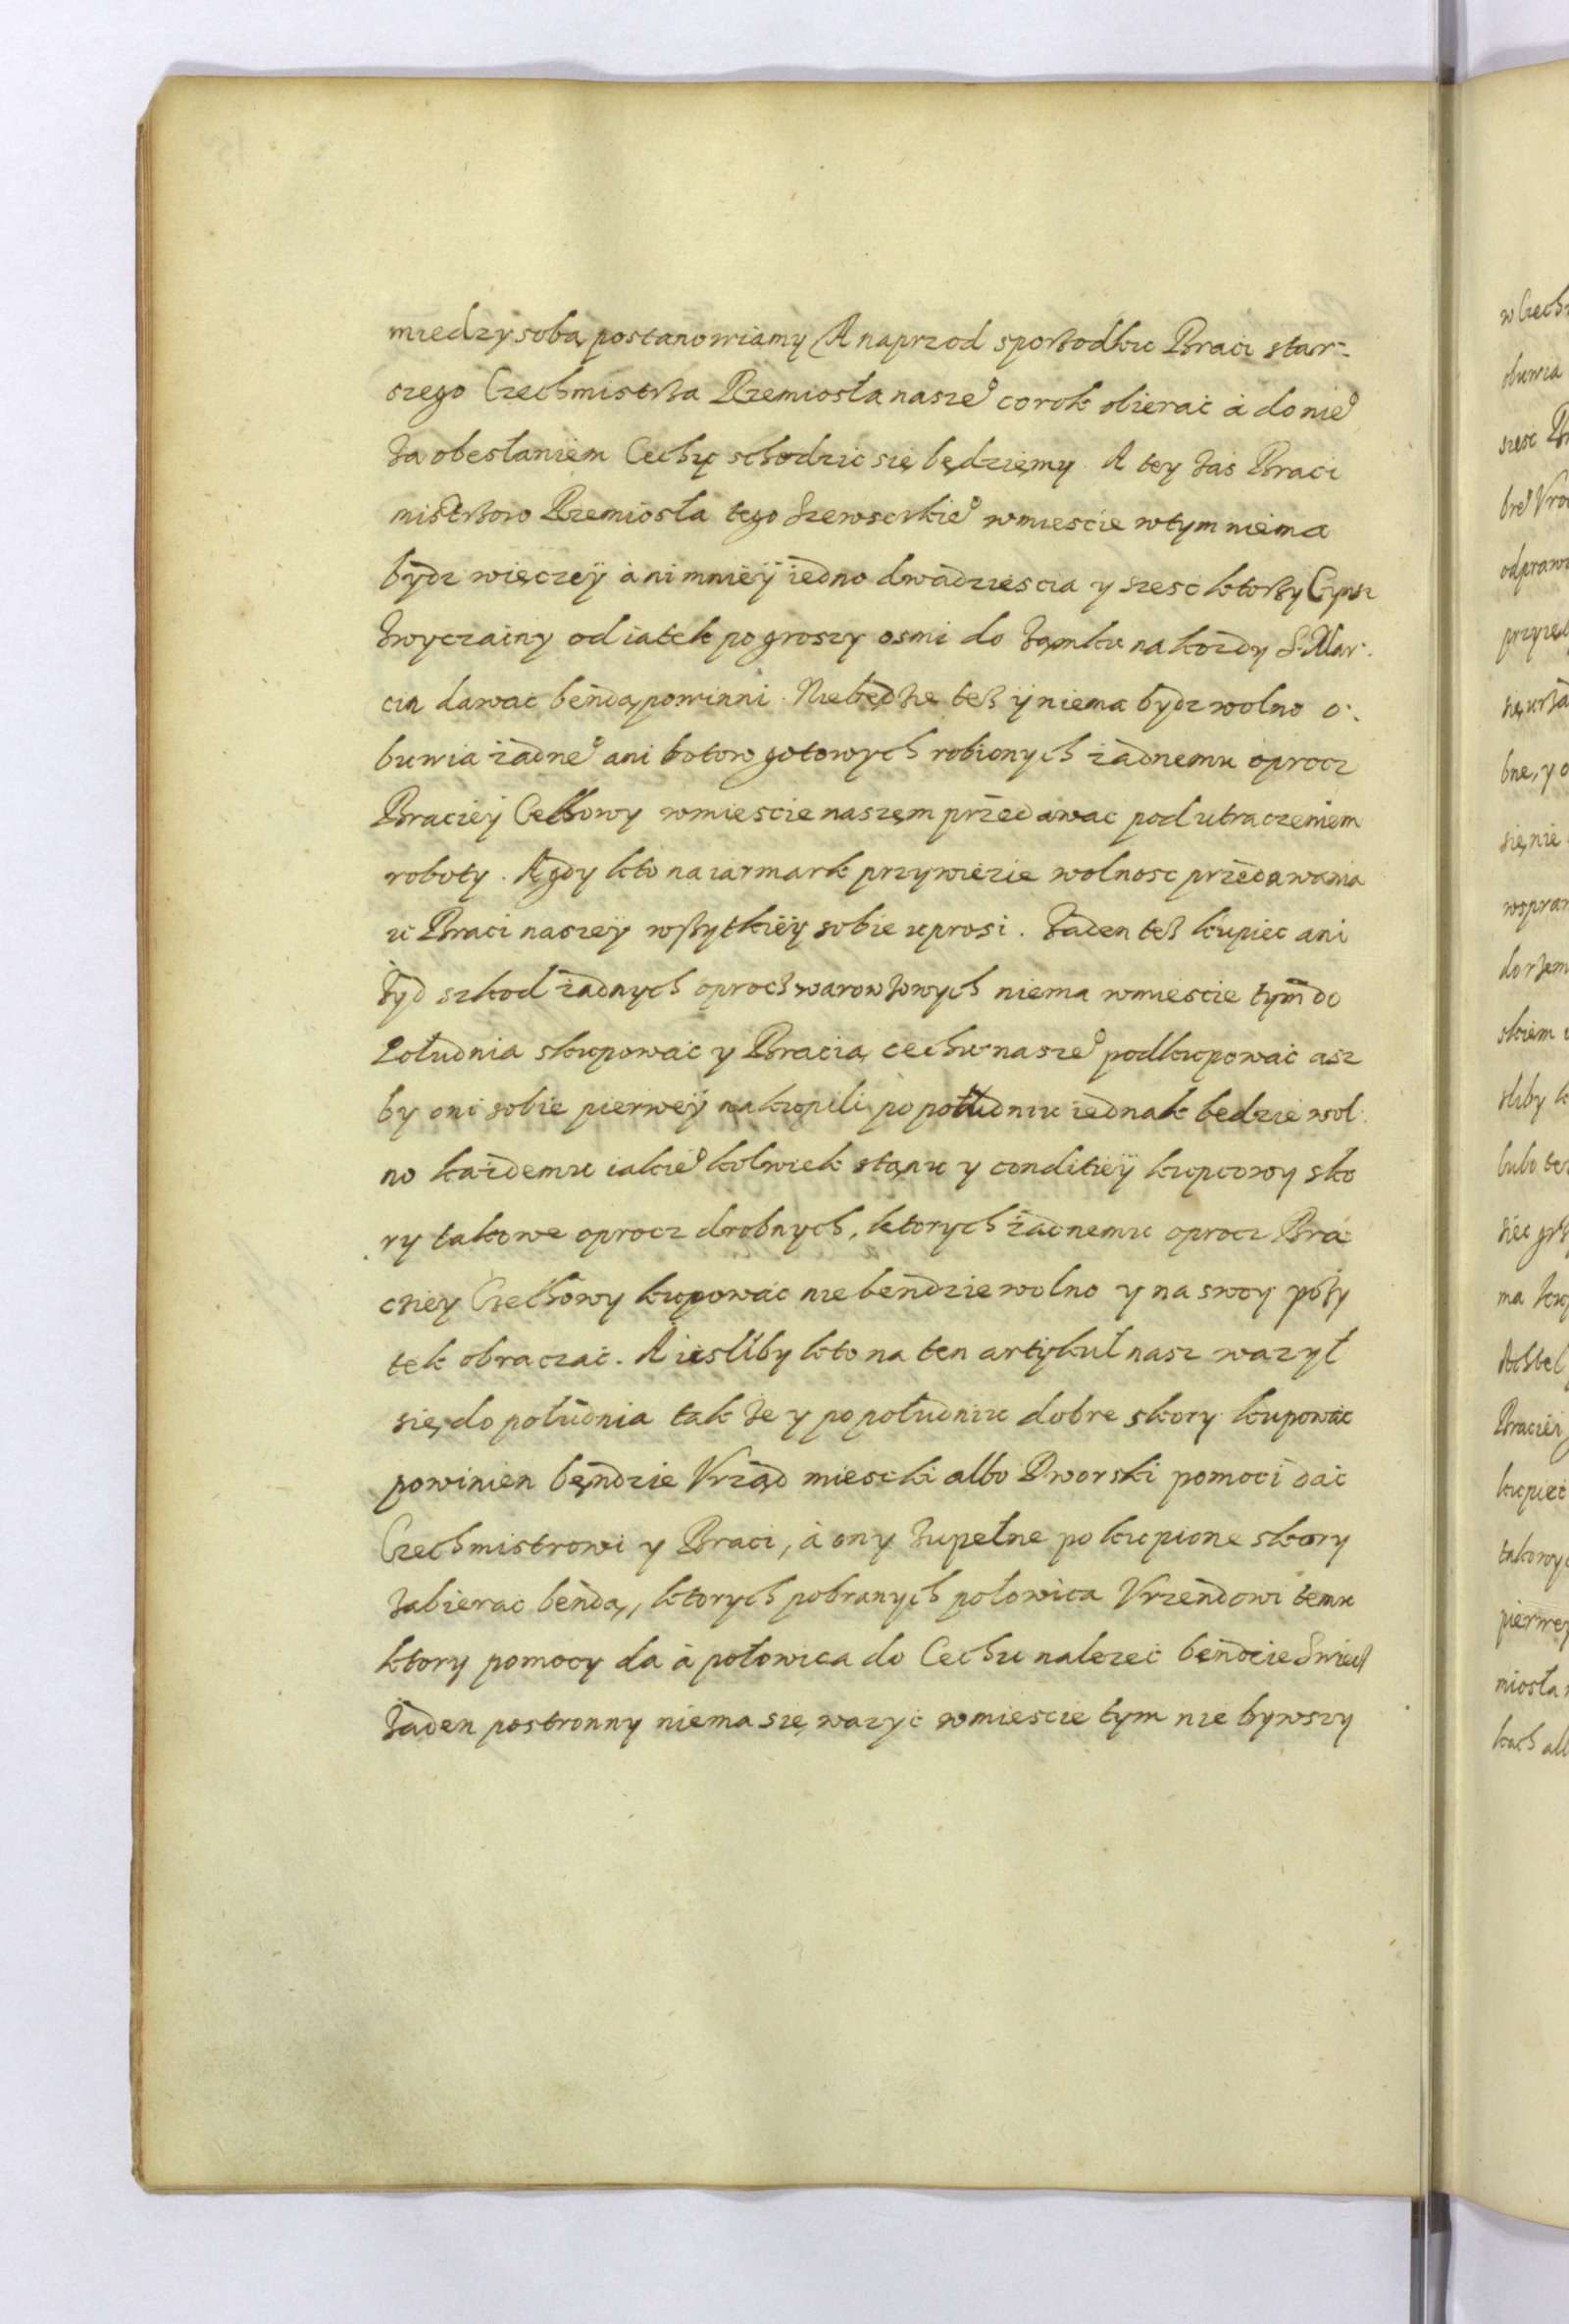 miedzy sobą postanowiamy A naprzod sporządku Braci star-
szego Czechmistrza Rzemiosła nasze° corok obierać á do nie°
za obesłaniem Cechę schodzic się będziemy. A tey zas Braci
mistrzow Rzemiosła tego Szewsckie° wmiescie wtym niema
bydz więczeÿ áni mnieÿ iedno dwadziescia y szesc ktorzy Cynsz
zwyczainy od iatek po groszy osmi do zamku na kozdy S. Mar-
cin dawac benda powinni. Niebędzie też ÿ niema bydz wolno o-
buwia żadne° ani botow gotowych robionych żadnemu oprocz
Bracieÿ Cechowy wmiescie naszem przedawac pod utraczeniem
roboty. A gdy kto na iarmark przywiezie wolnosc przedawania
u Braci naszeÿ wszytkieÿ sobie uprosi. Zaden też kupiec ani
żyd szkod żadnych oprocz warowzowych niema wmiescie tym do
Południa skupowac y Bracią cechu nasze° podkupowac asz
by oni sobie pierweÿ nakupili, po południu iednak bedzie wol-
no każdemu iakie° kolwiek stanu y conditieÿ kupcowy sko
ry takowe oprocz drobnych, ktorych żadnemu oprocz Bra
cziey Czechowy kupowac nie bendzie wolno y na swoy poży
tek obraczac. A iesliby kto na ten artykuł nasz ważył
się do południa tak ze y popołudniu dobre skory kupowac
powinien będzie Vrząd miescki albo Dworski pomoci dac
Czechmistrowi y Braci, á ony zupełne pokupione skory
zabierac benda, ktorych pobranych połowica Vrzendowi temu
ktory pomocy da á połowica do Cechu nalezec bendzie
Zaden postronny niema się wazyc wmiescie tym nie bywszy